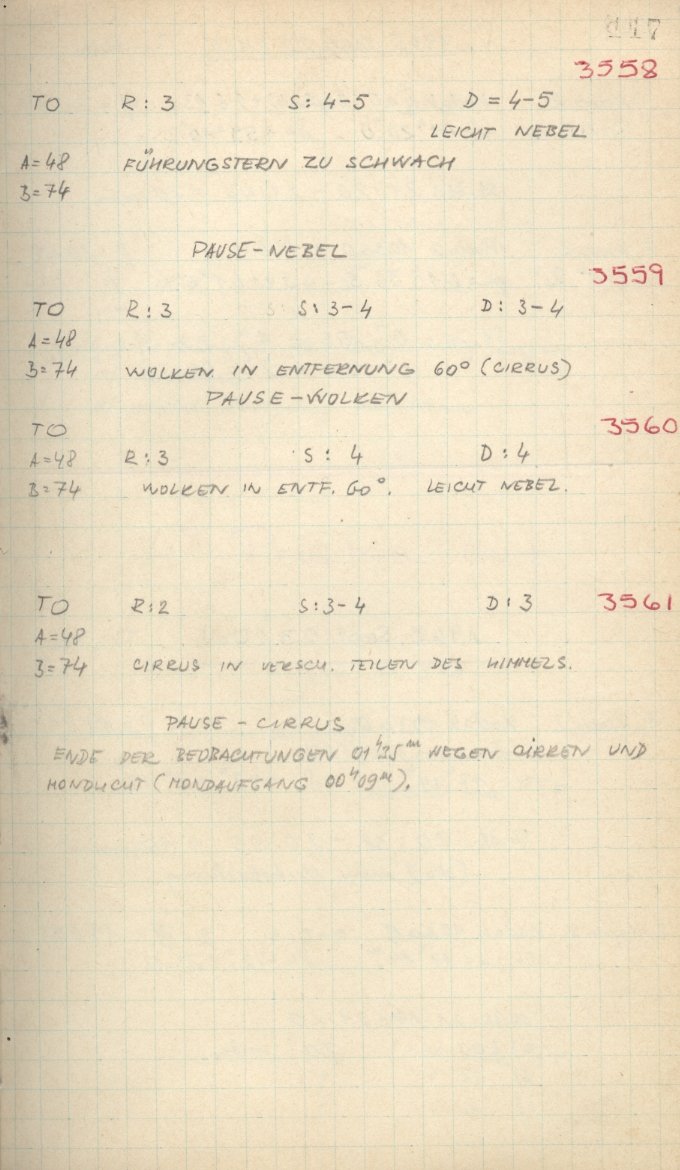 3558
TO R: 3 S: 4-5 D = 4-5
LEICHT NEBEL
A=48 FÜHRUNGSTERN ZU SCHWACH
B=74
PAUSE-NEBEL
3559
TO R: 3 S: 3-4 D: 3-4
A=48
B=74 WOLKEN IN ENTFERNUNG 60° (CIRRUS)
PAUSE-WOLKEN
TO 3560
A=48 R: 3 S: 4 D: 4
B=74 WOLKEN IN ENTF. 60°. LEICHT NEBEL.
TO R:2 S:3-4 D: 3 3561
A=48
B=74 CIRRUS IN VERSCH. TEILEN DES HIMMELS.
PAUSE - CIRRUS
ENDE DER BEOBACHTUNGEN WEGEN CIRREN UND
MONDLICHT (MONDAUFGANG 00ʰ09ᵐ).